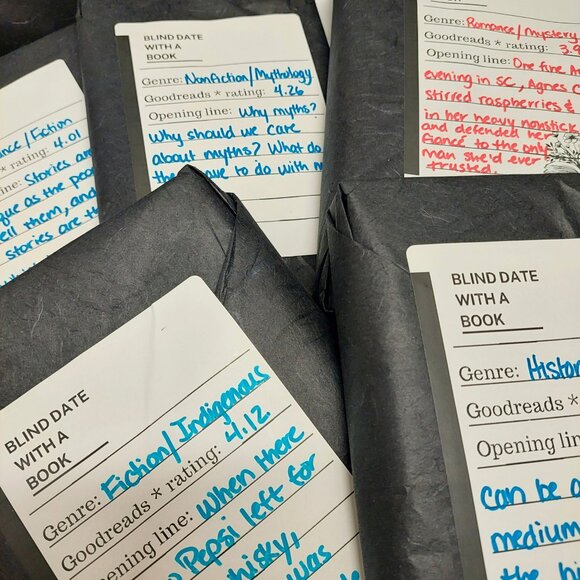 BLIND DATE
WITH A
BOOK
Genre: Nonfiction/Mythology
Goodreads * rating: 4.26
Opening line: Why myths?
Why should we care
about myths? What do
have to do with
Genre: Romance/Mystery
Goodreads * rating: 3.9
Opening line: One fine
evening in SC, Agnes C
stirred raspberries &
in her heavy nonstick
and defended her
fiance to the only
man she'd ever
trusted.
/Fiction
rating: 4.01
line: Stories are
que as the peop
tell them, and
stories are th
BLIND DATE
WITH A
BOOK
Genre: Fiction/Indigenous
Goodreads * rating: 4.12
Opening line: When there
Pepsi left for
whisky,
was
BLIND DATE
WITH A
BOOK
Genre: Histor
Goodreads *
Opening line
can be a
medium
the